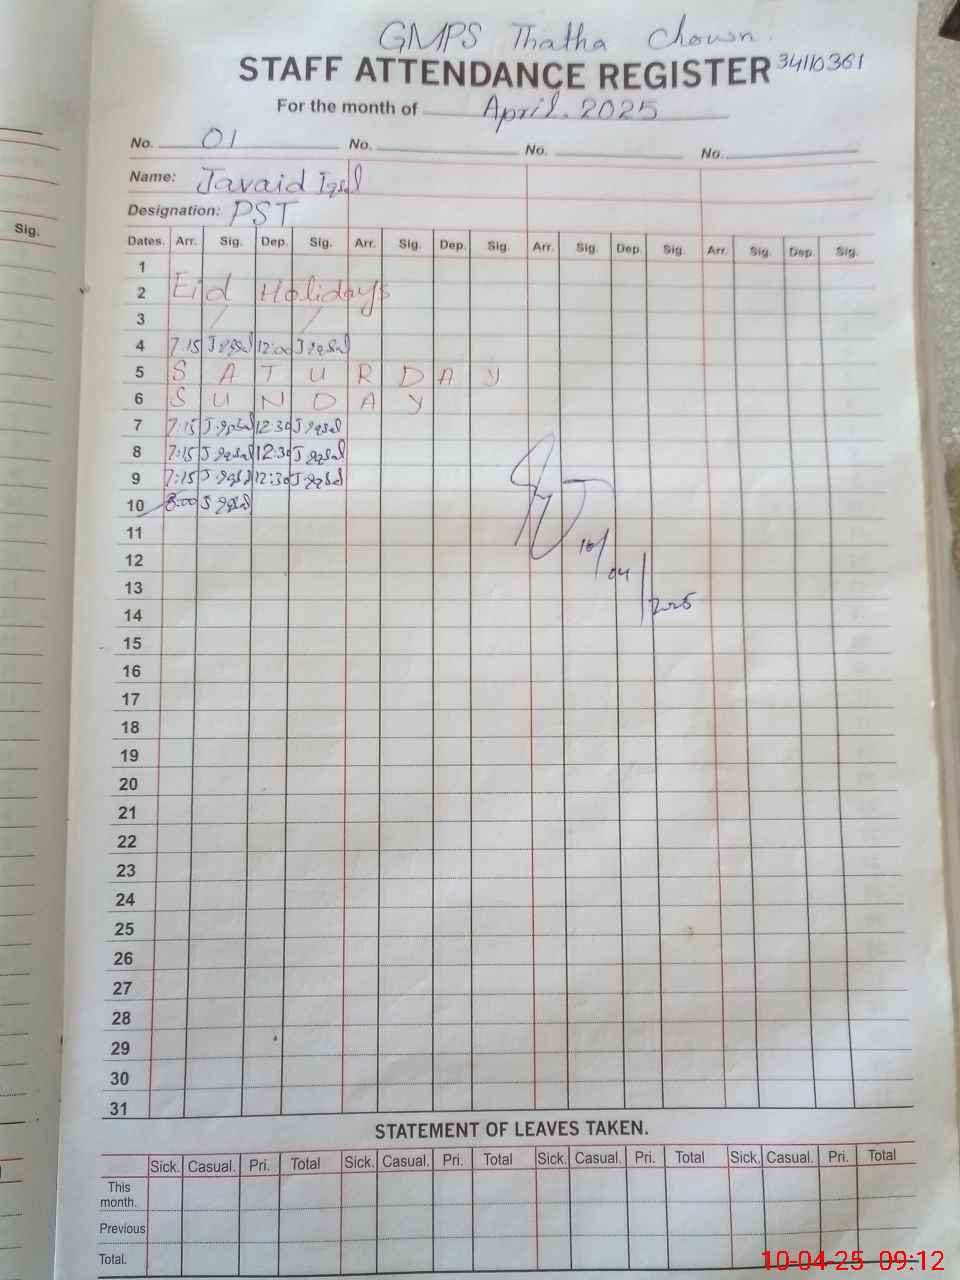 GMPS Thatha Chown.
STAFF ATTENDANCE REGISTER 34110361
For the month of April. 2025
No. 01 No. No. No.
Name: Javaid Iqbal
Designation: PST
Sig.
Dates. Arr. Sig. Dep. Sig. Arr. Sig. Dep. Sig. Arr. Sig. Dep. Sig. Arr. Sig. Dep. Sig.
1
2 Eid Holidays
3
4 7:15 J Iqbal 12:00 J Iqbal
5 S A T U R D A Y
6 S U N D A Y
7 7:15 J Iqbal 12:30 J Iqbal
8 7:15 J Iqbal 12:30 J Iqbal
9 7:15 J Iqbal 12:30 J Iqbal
10 8:00 J Iqbal
11
12 10/04/2025
13
14
15
16
17
18
19
20
21
22
23
24
25
26
27
28
29
30
31
STATEMENT OF LEAVES TAKEN.
Sick. Casual. Pri. Total Sick. Casual. Pri. Total Sick. Casual. Pri. Total Sick. Casual. Pri. Total
This
month.
Previous
Total.
10-04-25 09:12